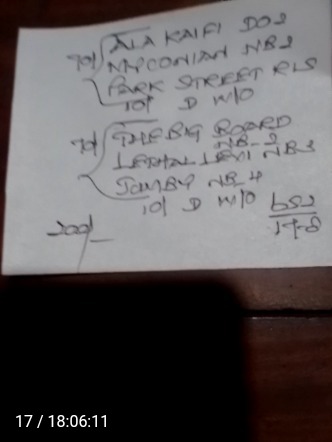 70/ ALA KAIFI DO2
MYCONIAN NB2
PARK STREET RLS
10/ D W/O
70/ THE BIG BOARD
NB-2
LETHAL LEVI NB3
JOMBY NB 4
10/ D W/O
200/-
652
17-8
17 / 18:06:11